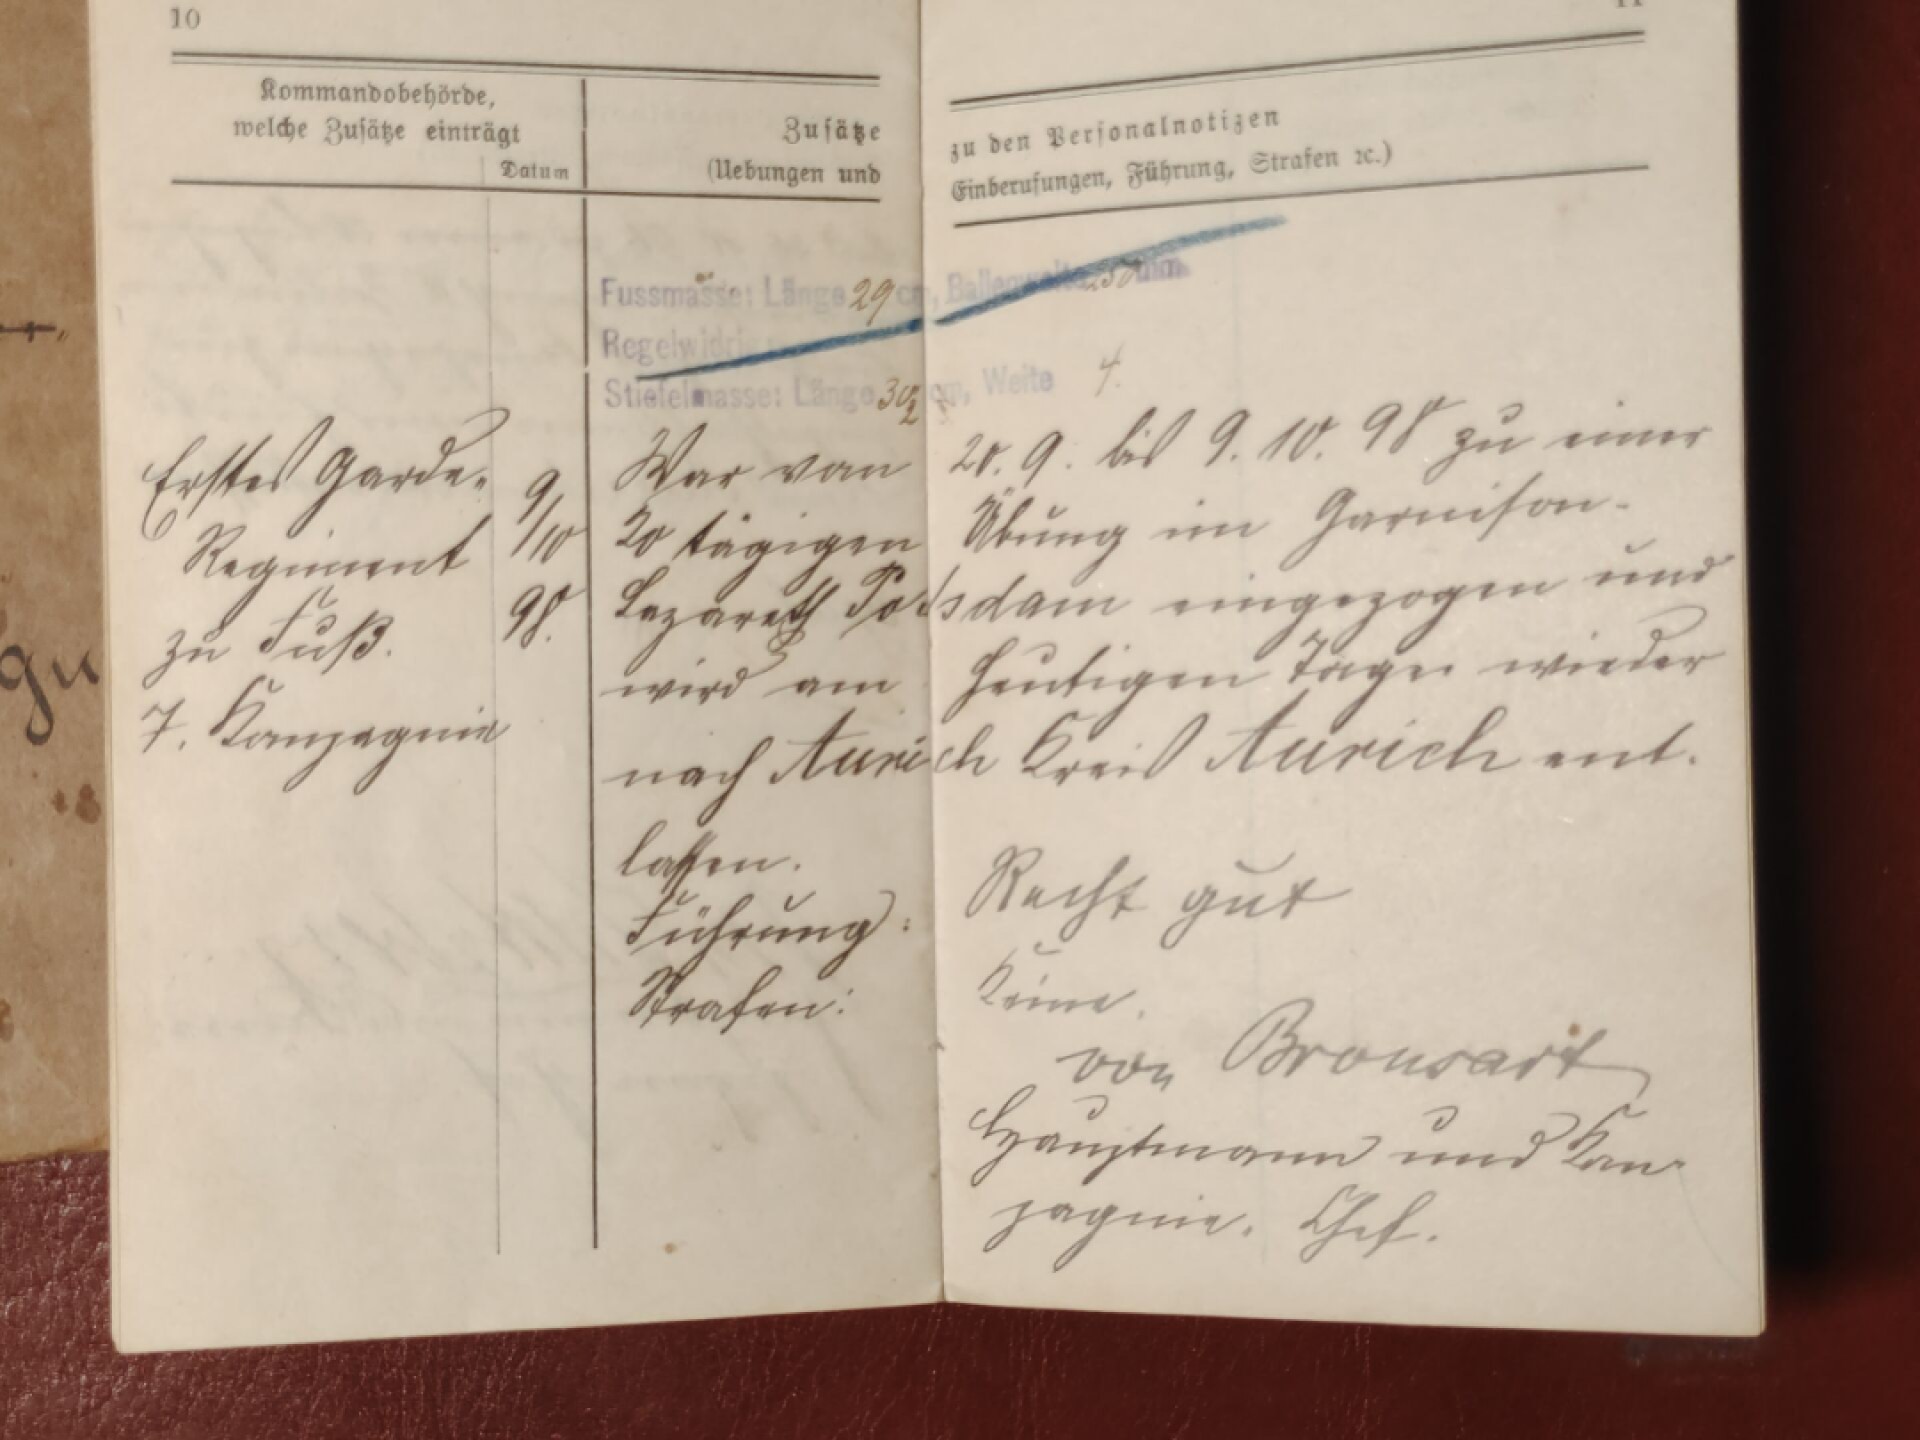 10
11
Kommandobehörde,
welche Zusätze einträgt
Datum
Zusätze zu den Personalnotizen
(Uebungen und Einberufungen, Führung, Strafen ꝛc.)
Fussmasse: Länge 29 cm, Ballenweite mm.
Regelwidrig
Stiefelmasse: Länge 30½ cm, Weite 4.
Erstes Garde-
Regiment
zu Fuß.
7. Kompagnie
9/10
98.
War vom 20. 9. bis 9. 10. 98 zu einer
20 tägigen Übung im Garnison-
Lazareth Potsdam eingezogen und
wird am heutigen Tage wieder
nach Aurich Kreis Aurich ent.
lassen.
Führung: Recht gut
Strafen: Keine.
von Bronsart
Hauptmann und Kom-
pagnie. Chef.
gu